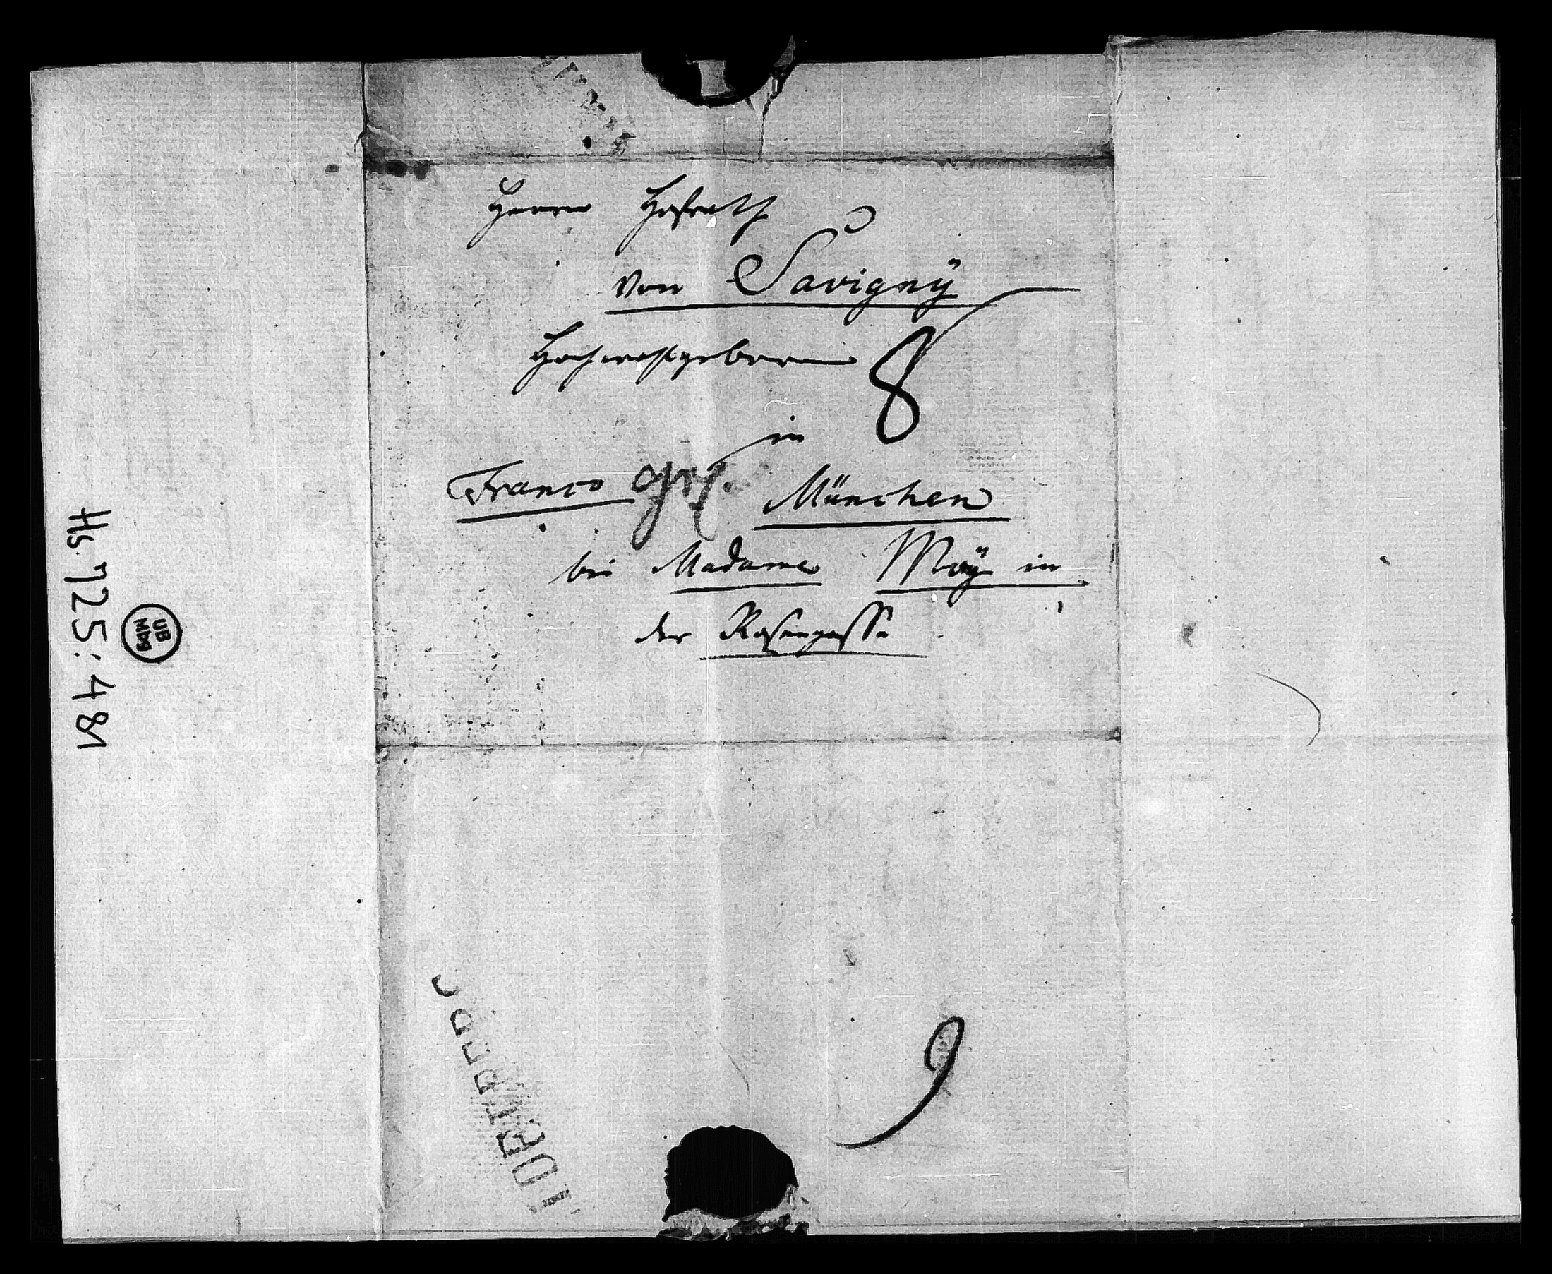 Herrn Hofrath
von Savigny
Hochwohlgeboren
8
in
Franco grz. München
bei Madame Moÿ in
der Rosengasse
Hs 725:481
UB
Mbg
9